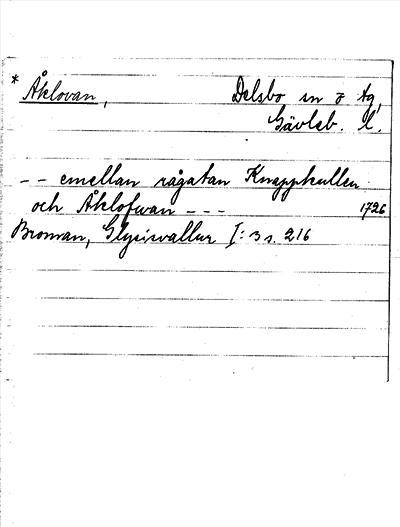 * Åklovan, Delsbo sn ö tg,
Gävleb. l.
-- emellan rågatan Knappkullen
och Åklofwan --- 1726
Broman, Glysisvallur I: 3 s. 216